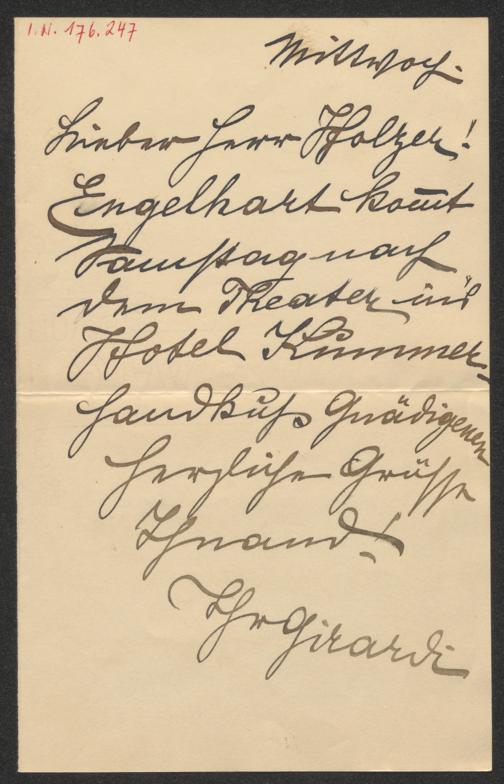 I.N. 176.247
Mittwoch.
Lieber Herr Holzer!
Engelhart kom̅t
Samstag nach
dem Theater in's
Hotel Kummer.
Handkuß Gnädigenen
Herzliche Grüsse
Ihnand!
Ihr Girardi